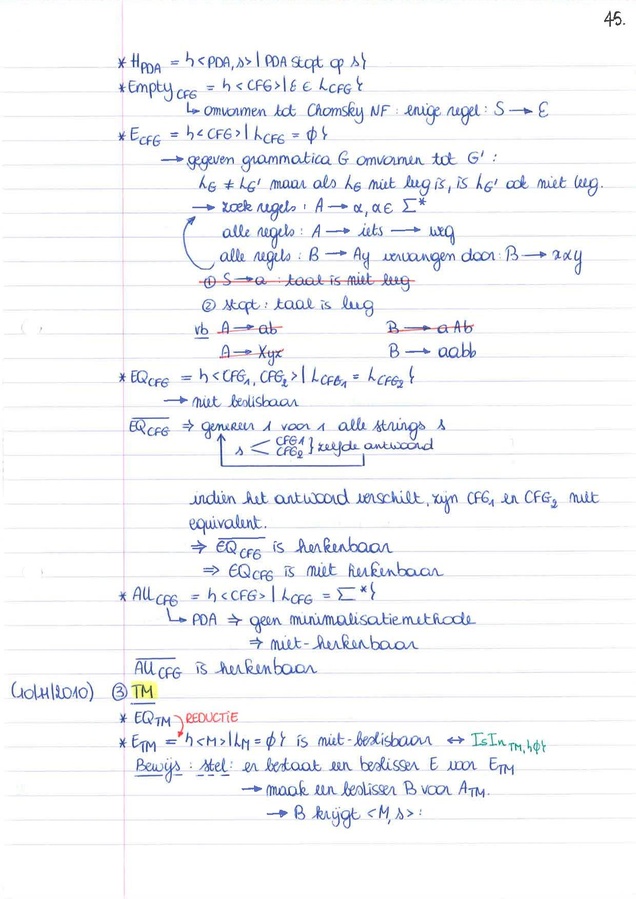 45.
* H_PDA = {<PDA,s> | PDA stopt op s}
* Empty_CFG = {<CFG> | ε ∈ L_CFG}
↳ omvormen tot Chomsky NF : enige regel : S → ε
* E_CFG = {<CFG> | L_CFG = ϕ}
→ gegeven grammatica G omvormen tot G' :
L_G ≠ L_G' maar als L_G niet leeg is, is L_G' ook niet leeg.
→ zoek regels : A → α, α ∈ Σ*
alle regels : A → iets → weg
alle regels : B → Ay vervangen door : B → xαy
① S → a : taal is niet leeg
② stopt : taal is leeg
vb A → ab B → aAb
A → Xyx B → aabb
* EQ_CFG = {<CFG₁, CFG₂> | L_CFG₁ = L_CFG₂}
→ niet beslisbaar
E̅Q̅_CFG ⇒ genereer 1 voor 1 alle strings s
s < CFG1 CFG2 } zelfde antwoord
indien het antwoord verschilt, zijn CFG₁ en CFG₂ niet
equivalent.
⇒ E̅Q̅_CFG is herkenbaar
⇒ EQ_CFG is niet herkenbaar
* All_CFG = {<CFG> | L_CFG = Σ*}
↳ PDA ⇒ geen minimalisatiemethode
⇒ niet-herkenbaar
A̅l̅l̅_CFG is herkenbaar
③ TM
* EQ_TM REDUCTIE
* E_TM = {<M> | L_M = ϕ} is niet-beslisbaar ↔ IsIn_TM,{ϕ}
Bewijs : stel : er bestaat een beslisser E voor E_TM
→ maak een beslisser B voor A_TM.
→ B krijgt <M,s> :